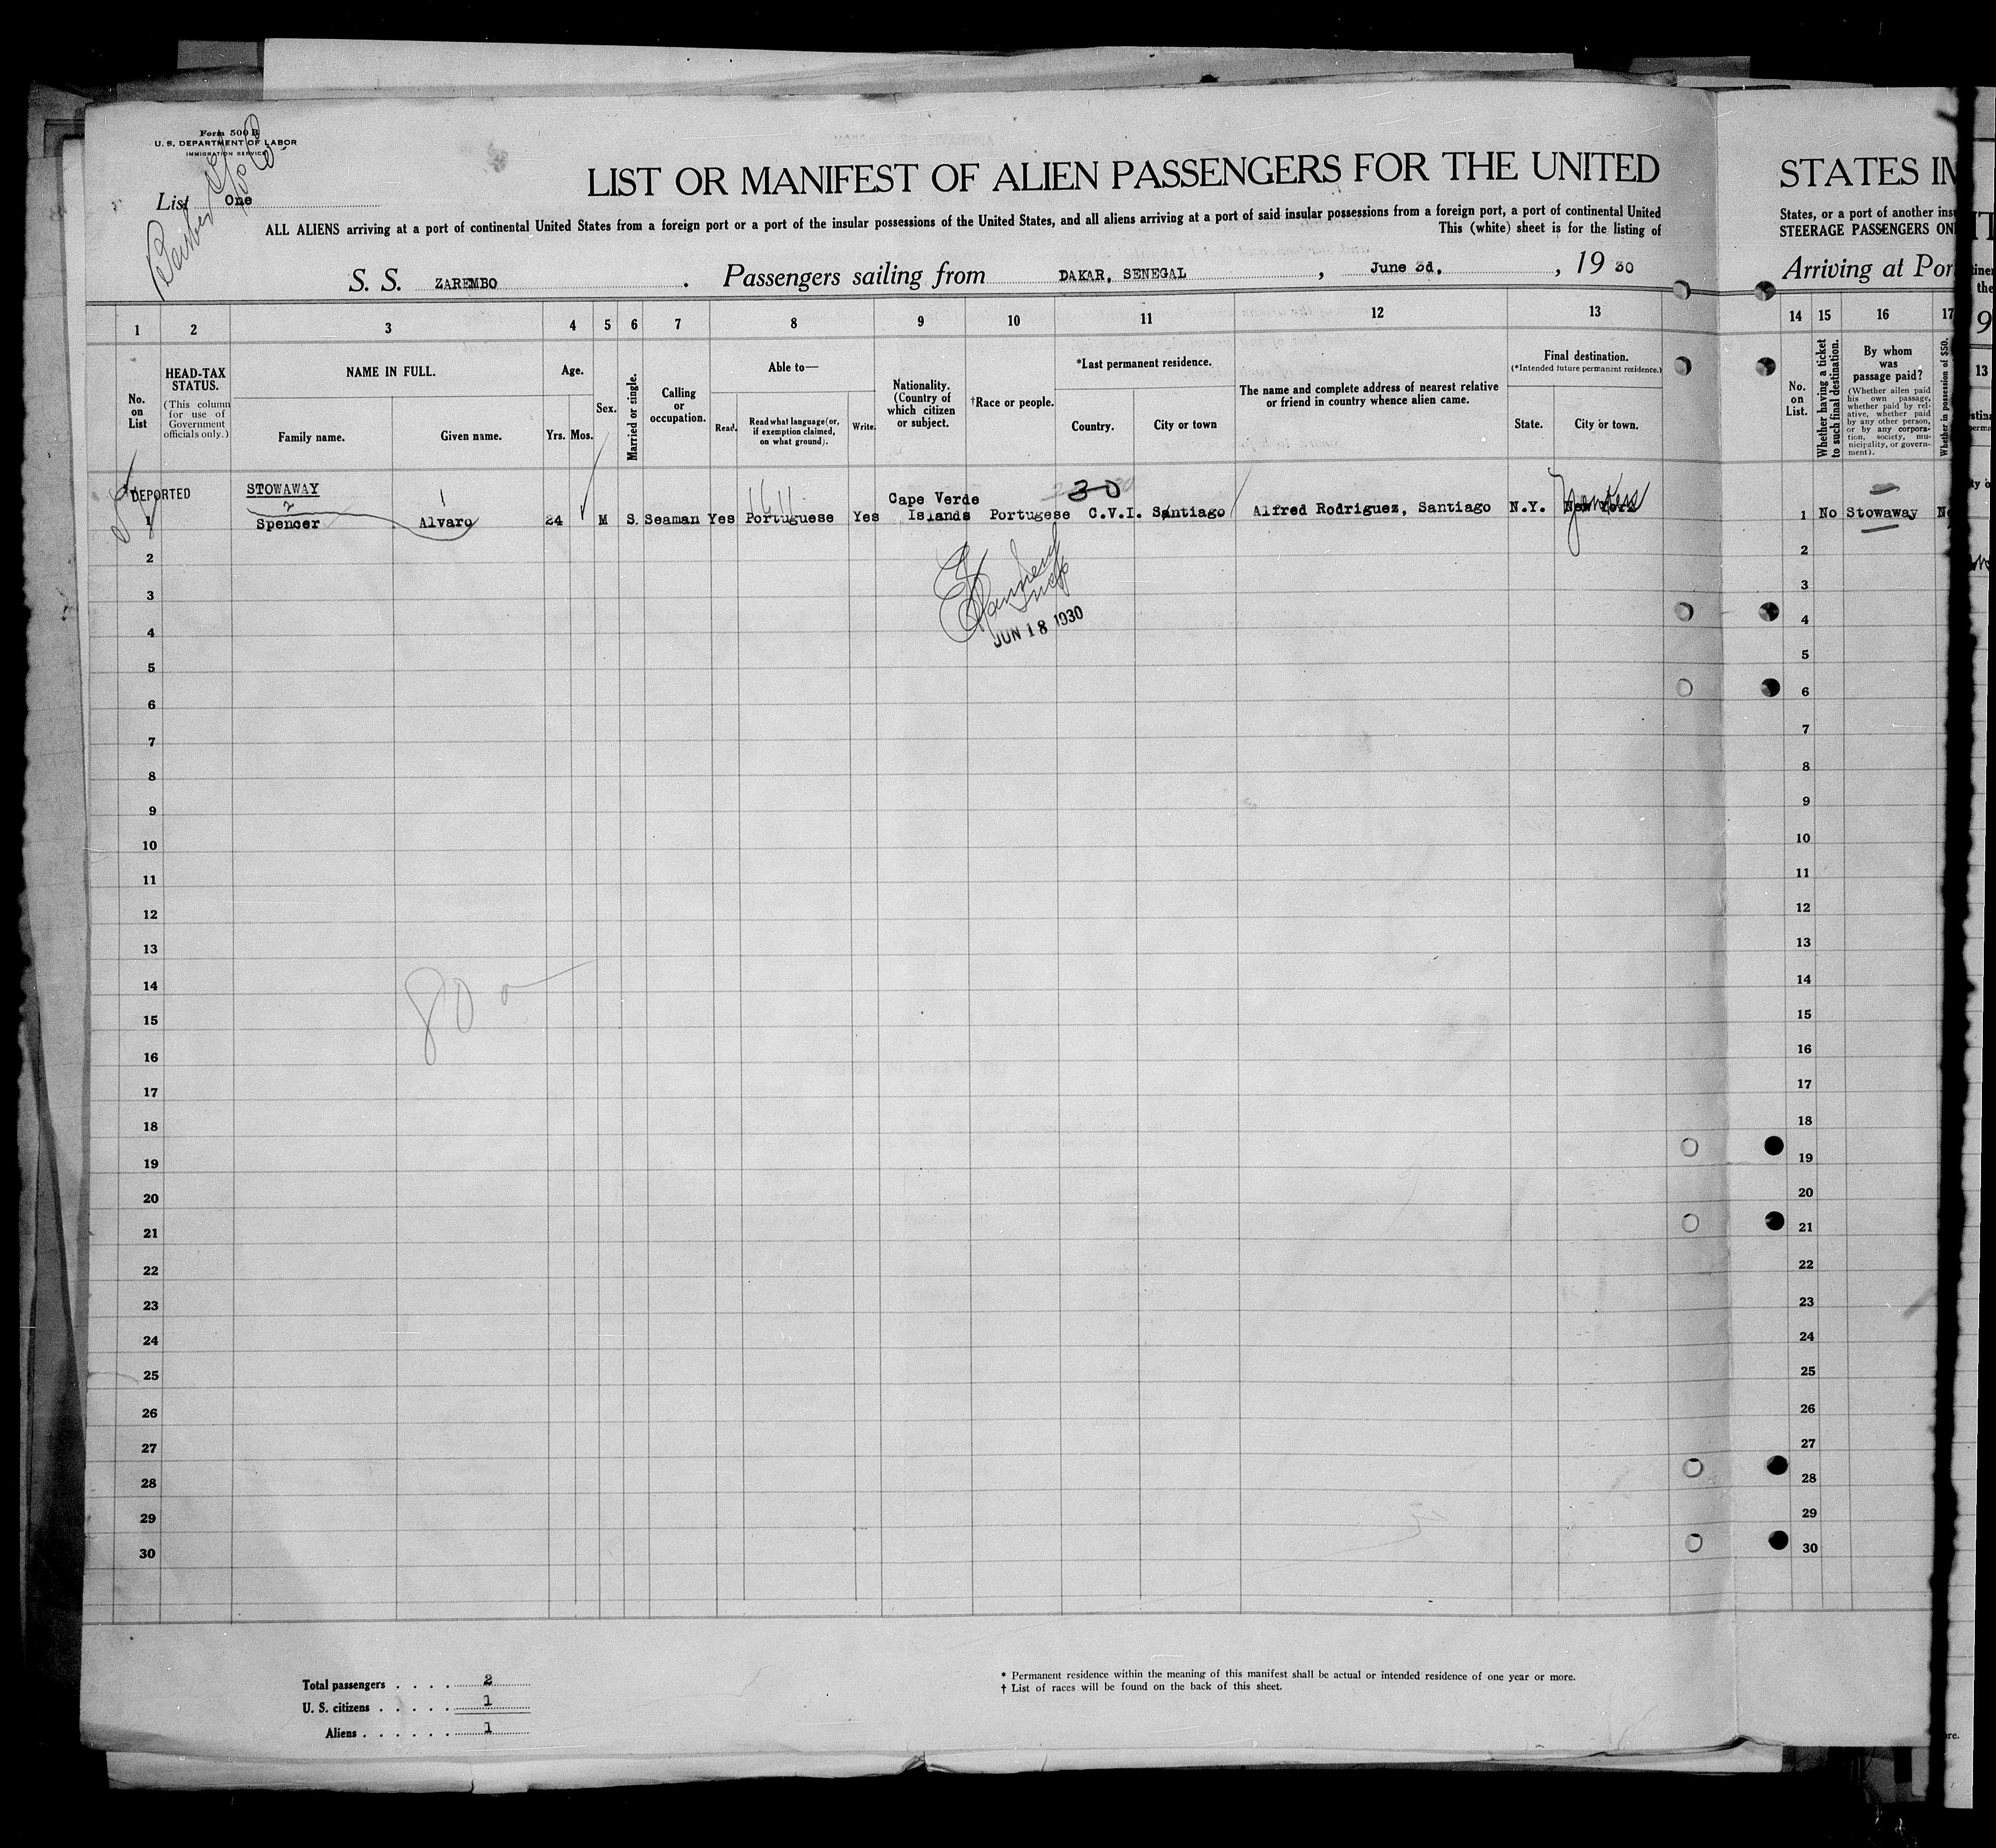 Form 500 B
U. S. DEPARTMENT OF LABOR
IMMIGRATION SERVICE
List One
LIST OR MANIFEST OF ALIEN PASSENGERS FOR THE UNITED
ALL ALIENS arriving at a port of continental United States from a foreign port or a port of the insular possessions of the United States, and all aliens arriving at a port of said insular possessions from a foreign port, a port of continental United
This (white) sheet is for the listing of
S. S. ZAREMBO. Passengers sailing from DAKAR, SENEGAL, June 3d, , 19 30
STATES IN
States, or a port of another ins
STEERAGE PASSENGERS ON
Arriving at Por
1 2 3 4 5 6 7 8 9 10 11 12 13
14 15 16 17
No. on List
HEAD-TAX STATUS.
(This column for use of Government officials only.)
NAME IN FULL.
Family name. Given name.
Age.
Yrs. Mos.
Sex.
Married or single.
Calling or occupation.
Able to—
Read. Read what language (or, if exemption claimed, on what ground). Write.
Nationality. (Country of which citizen or subject.
†Race or people.
*Last permanent residence.
Country. City or town
The name and complete address of nearest relative or friend in country whence alien came.
Final destination.
(*Intended future permanent residence.)
State. City or town.
No. on List.
Whether having a ticket to such final destination.
By whom was passage paid?
(Whether alien paid his own passage, whether paid by relative, whether paid by any other person, or by any corporation, society, municipality, or government).
Whether in possession of $50,
DEPORTED STOWAWAY
2 1 30
1 Spencer Alvaro 24 M S. Seaman Yes Portuguese Yes Cape Verde Islands Portugese C.V.I. Santiago Alfred Rodriguez, Santiago N.Y. New York Yonkers
1 No Stowaway No
JUN 18 1930
2
3
4
5
6
7
8
9
10
11
12
13
14
15
16
17
18
19
20
21
22
23
24
25
26
27
28
29
30
2
3
4
5
6
7
8
9
10
11
12
13
14
15
16
17
18
19
20
21
22
23
24
25
26
27
28
29
30
80
Total passengers . . . . 2
U. S. citizens . . . . . 1
Aliens . . . . . . 1
* Permanent residence within the meaning of this manifest shall be actual or intended residence of one year or more.
† List of races will be found on the back of this sheet.